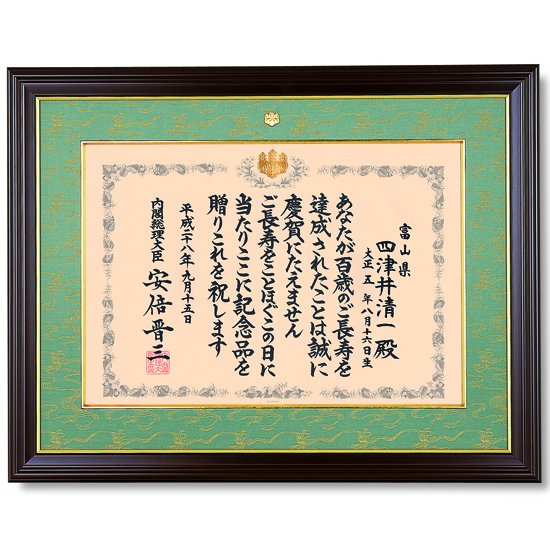 富山県
四津井清一殿
大正五年八月十六日生
あなたが百歳のご長寿を
達成されたことは誠に
慶賀にたえません
ご長寿をことほぐこの日に
当たりここに記念品を
贈りこれを祝します
平成二八年九月十五日
内閣総理大臣 安倍晋三